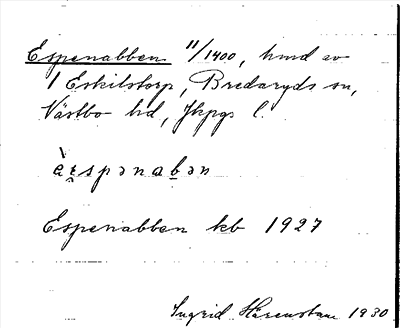 Espenabben 11/1400, hmd av
1 Eskilstorp, Bredaryds sn,
Västbo hd, Jkpgs l.
Espenabben kb 1927
Ingrid 1930